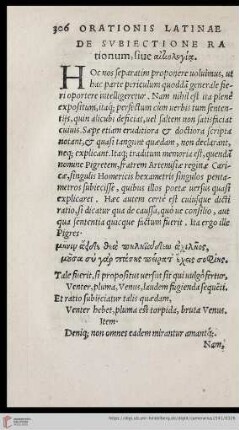 306 ORATIONIS LATINAE
DE SVBIECTIONE RA
tionum, siue αἰτιολογία.
HOc nos separatim proponere voluimus, ut
hac parte periculum quoddã generale fie
ri oportere intelligeretur. Nam nihil est ita plenè
expositum, itaq; perfectum cum verbis tum senten-
tijs, quin alicubi deficiat, vel saltem non satisficiat
cuiuis. Sæpe etiam eruditiora & doctiora scripta
notant, & quasi tangunt quædam, non declarant,
neq; explicant. Itaq; traditum memoria est, quendã
nomine Pigretem, fratrem Artemisiæ reginæ Cari-
cæ, singulis Homericis hexametris singulos penta-
metros subiecisse, quibus illos poetæ versus quasi
explicaret. Hæc autem certè est cuiusque dicti
ratio, si dicatur qua de caussa, quóue consilio, aut
qua sententia quicque factum fuerit. Ita ergo ille
Pigres
μῆνιν ἄειδε θεὰ πηληϊάδεω ἀχιλῆος,
μοῦσα σὺ γὰρ πάσης πείρατ' ἔχεις σοφίης.
Tale fuerit, si propositus versus sit qui vulgò fertur,
Venter, pluma, Venus, laudem fugienda sequẽti.
Et ratio subijciatur talis quædam,
Venter hebet, pluma est torpida, bruta Venus.
Item
Deniq; non omnes eadem mirantur amantq;.
Nam,